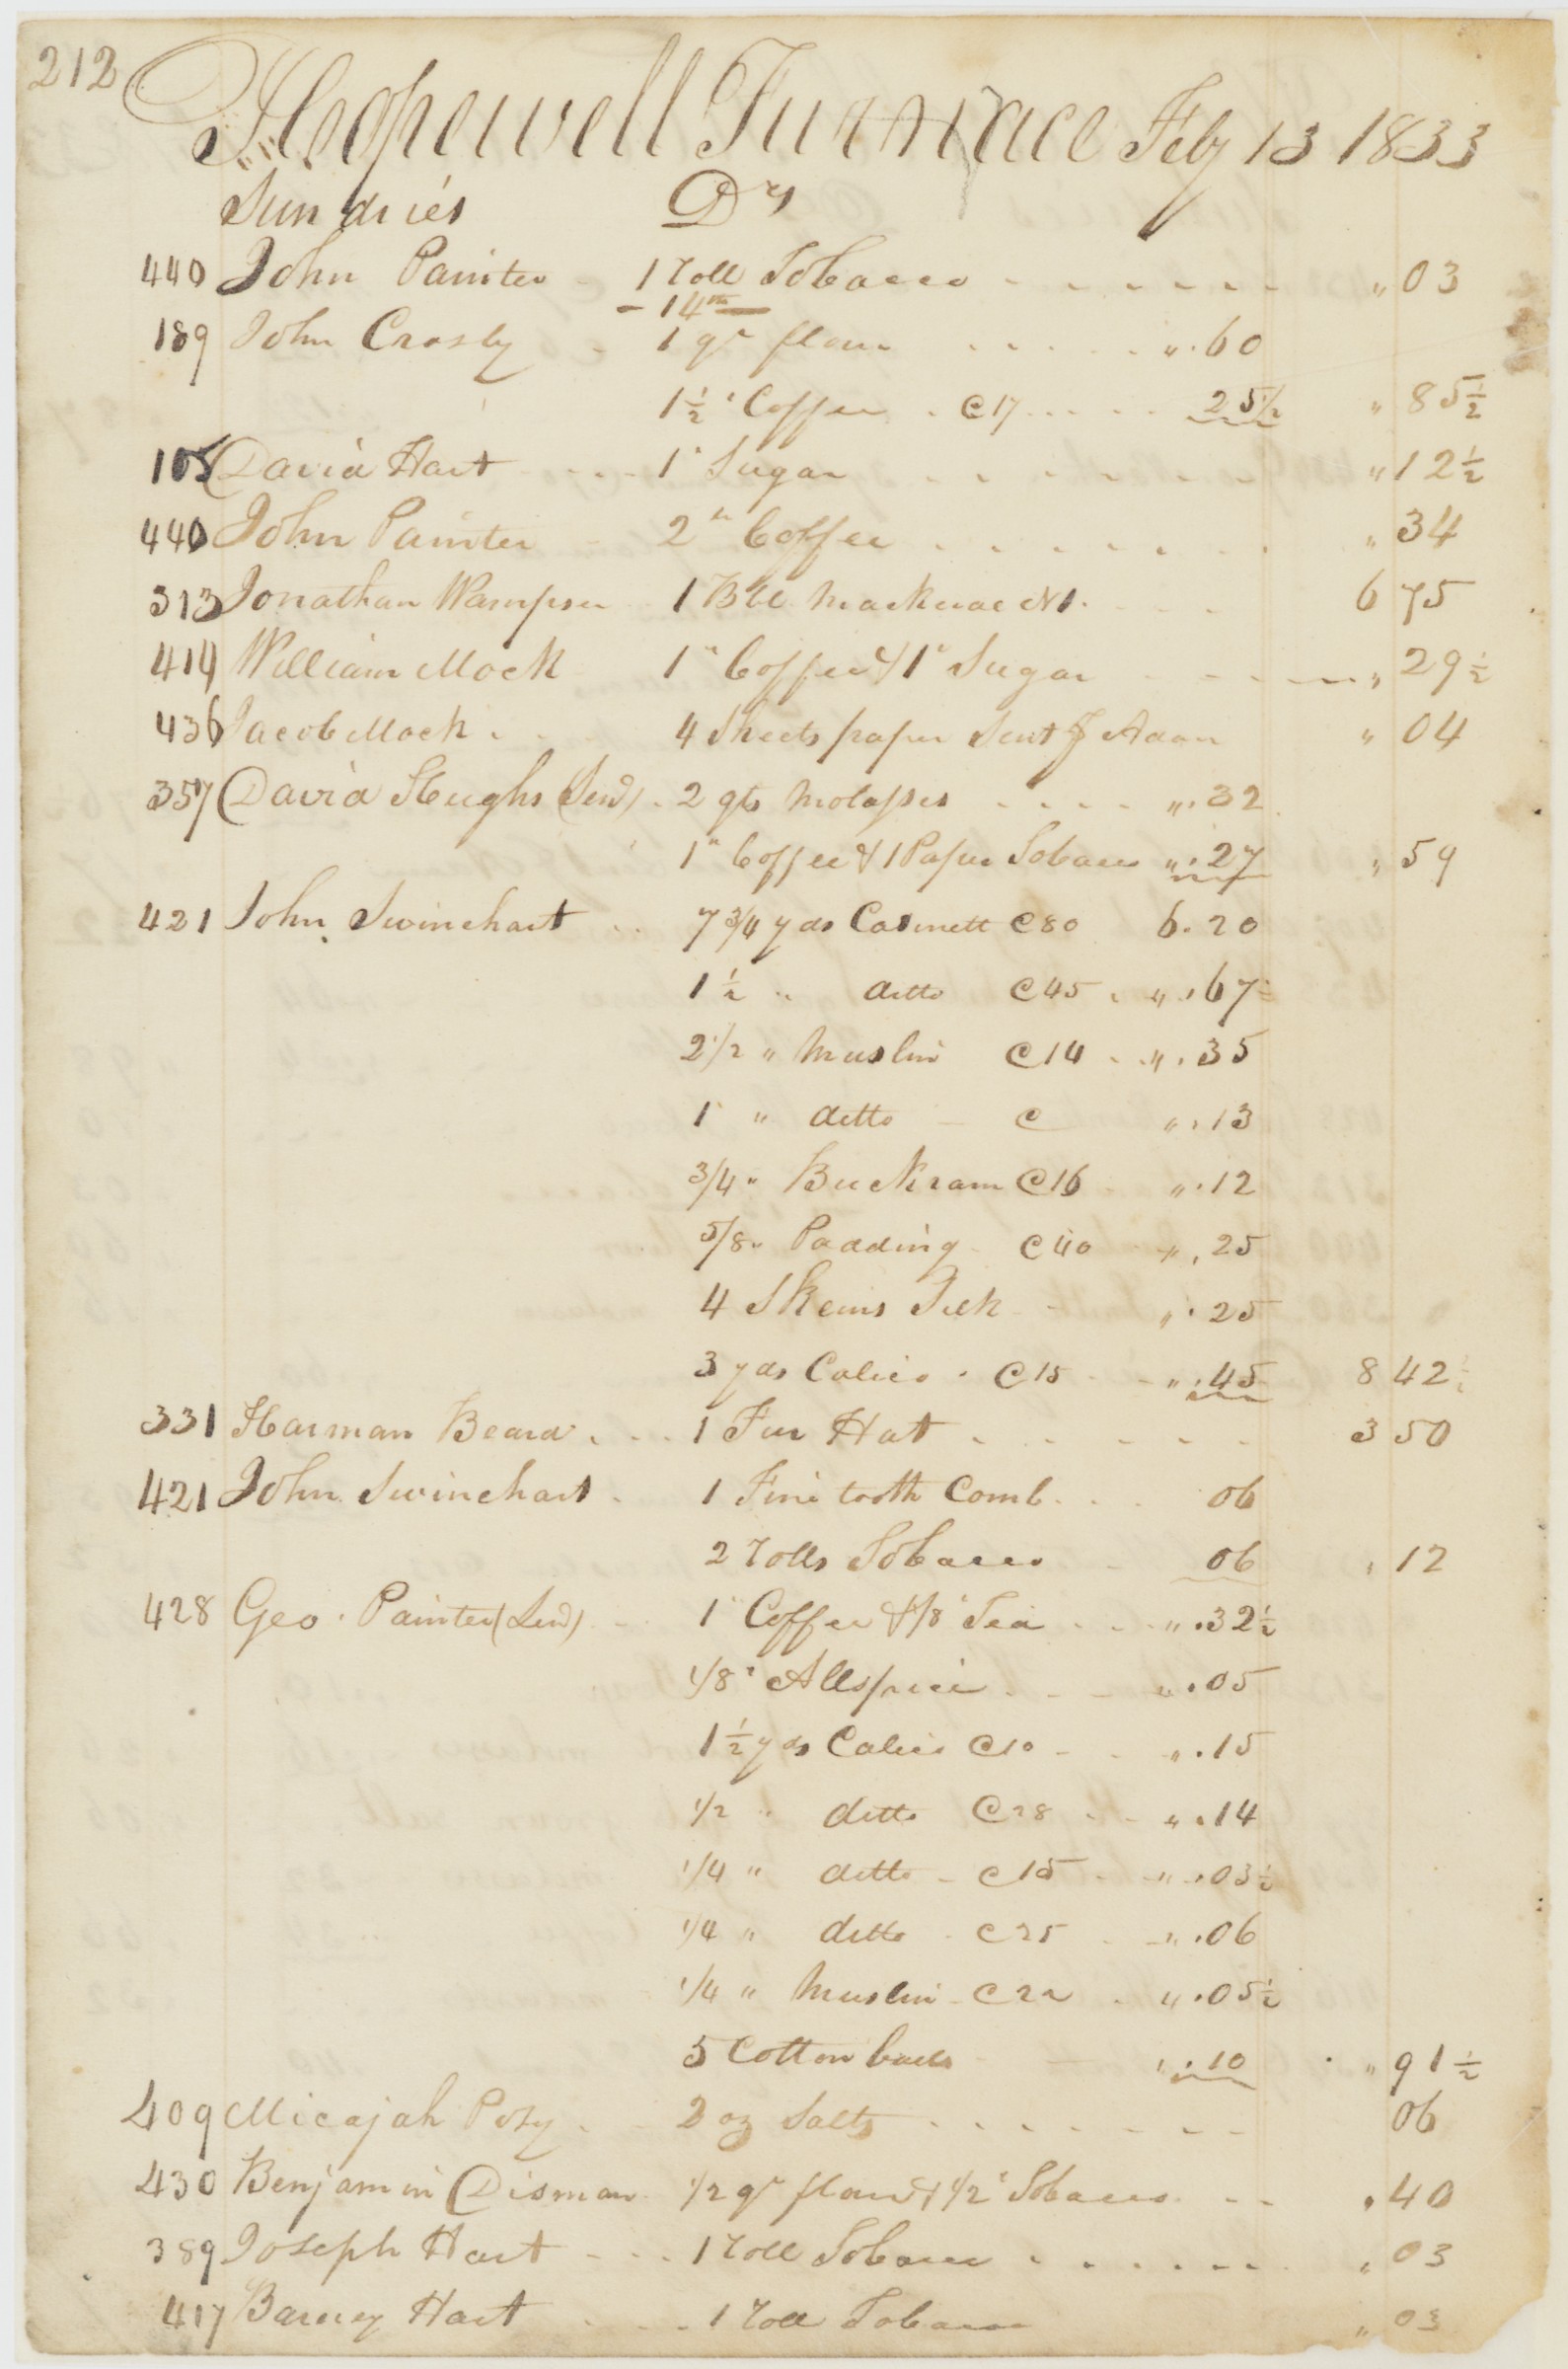 212
Hopewell Furnace Feby 13 1833
Sundries Drs
440 John Painter 1 roll Tobacco " 03
- 14th -
189 John Crosby 1 qr flour ". 60
1 1/2 " Coffee @ 17 25 1/2 " 85 1/2
105 David Hart 1 " Sugar " 12 1/2
440 John Painter 2 " Coffee " 34
313 Jonathan Wampser 1 Bbl Mackerae N1. 6 75
414 William Mock 1 " Coffee & 1 " Sugar " 29 1/2
436 Jacob Mock 4 Sheets paper Sent Adam " 04
357 David Hughs (Send) 2 qts Molasses ". 32
1 " Coffee & 1 Paper Tobacco ". 27 " 59
421 John Swinehart 7 3/4 yds Casinett @ 80 6. 20
1 1/2 " ditto @ 45 ". 67 1/2
2 1/2 " Muslin @ 14 ". 35
1 " ditto @ ". 13
3/4 " Buckram @ 16 ". 12
5/8 " Padding @ 40 ". 25
4 Skeins Silk ". 25
3 yds Calico @ 15 ". 45 8 42 1/2
331 Harman Beard 1 Fur Hat 3 50
421 John Swinehart 1 Fine tooth Comb 06
2 rolls Tobacco 06 " 12
428 Geo. Painter (Send) 1 " Coffee & 1/8 " Tea ". 32 1/2
1/8 " Allspice ". 05
1 1/2 yds Calico @ 10 ". 15
1/2 " ditto @ 28 ". 14
1/4 " ditto @ 15 ". 03 1/2
1/4 " ditto @ 25 ". 06
1/4 " Muslin @ 22 ". 05 1/2
5 Cotton balls ". 10 " 91 1/2
409 Micajah Posy 2 oz Salts 06
430 Benjamin Disman 1/2 qr flour & 1/2 " Tobacco . 40
389 Joseph Hart 1 roll Tobacco " 03
417 Barney Hart 1 roll Tobacco " 03